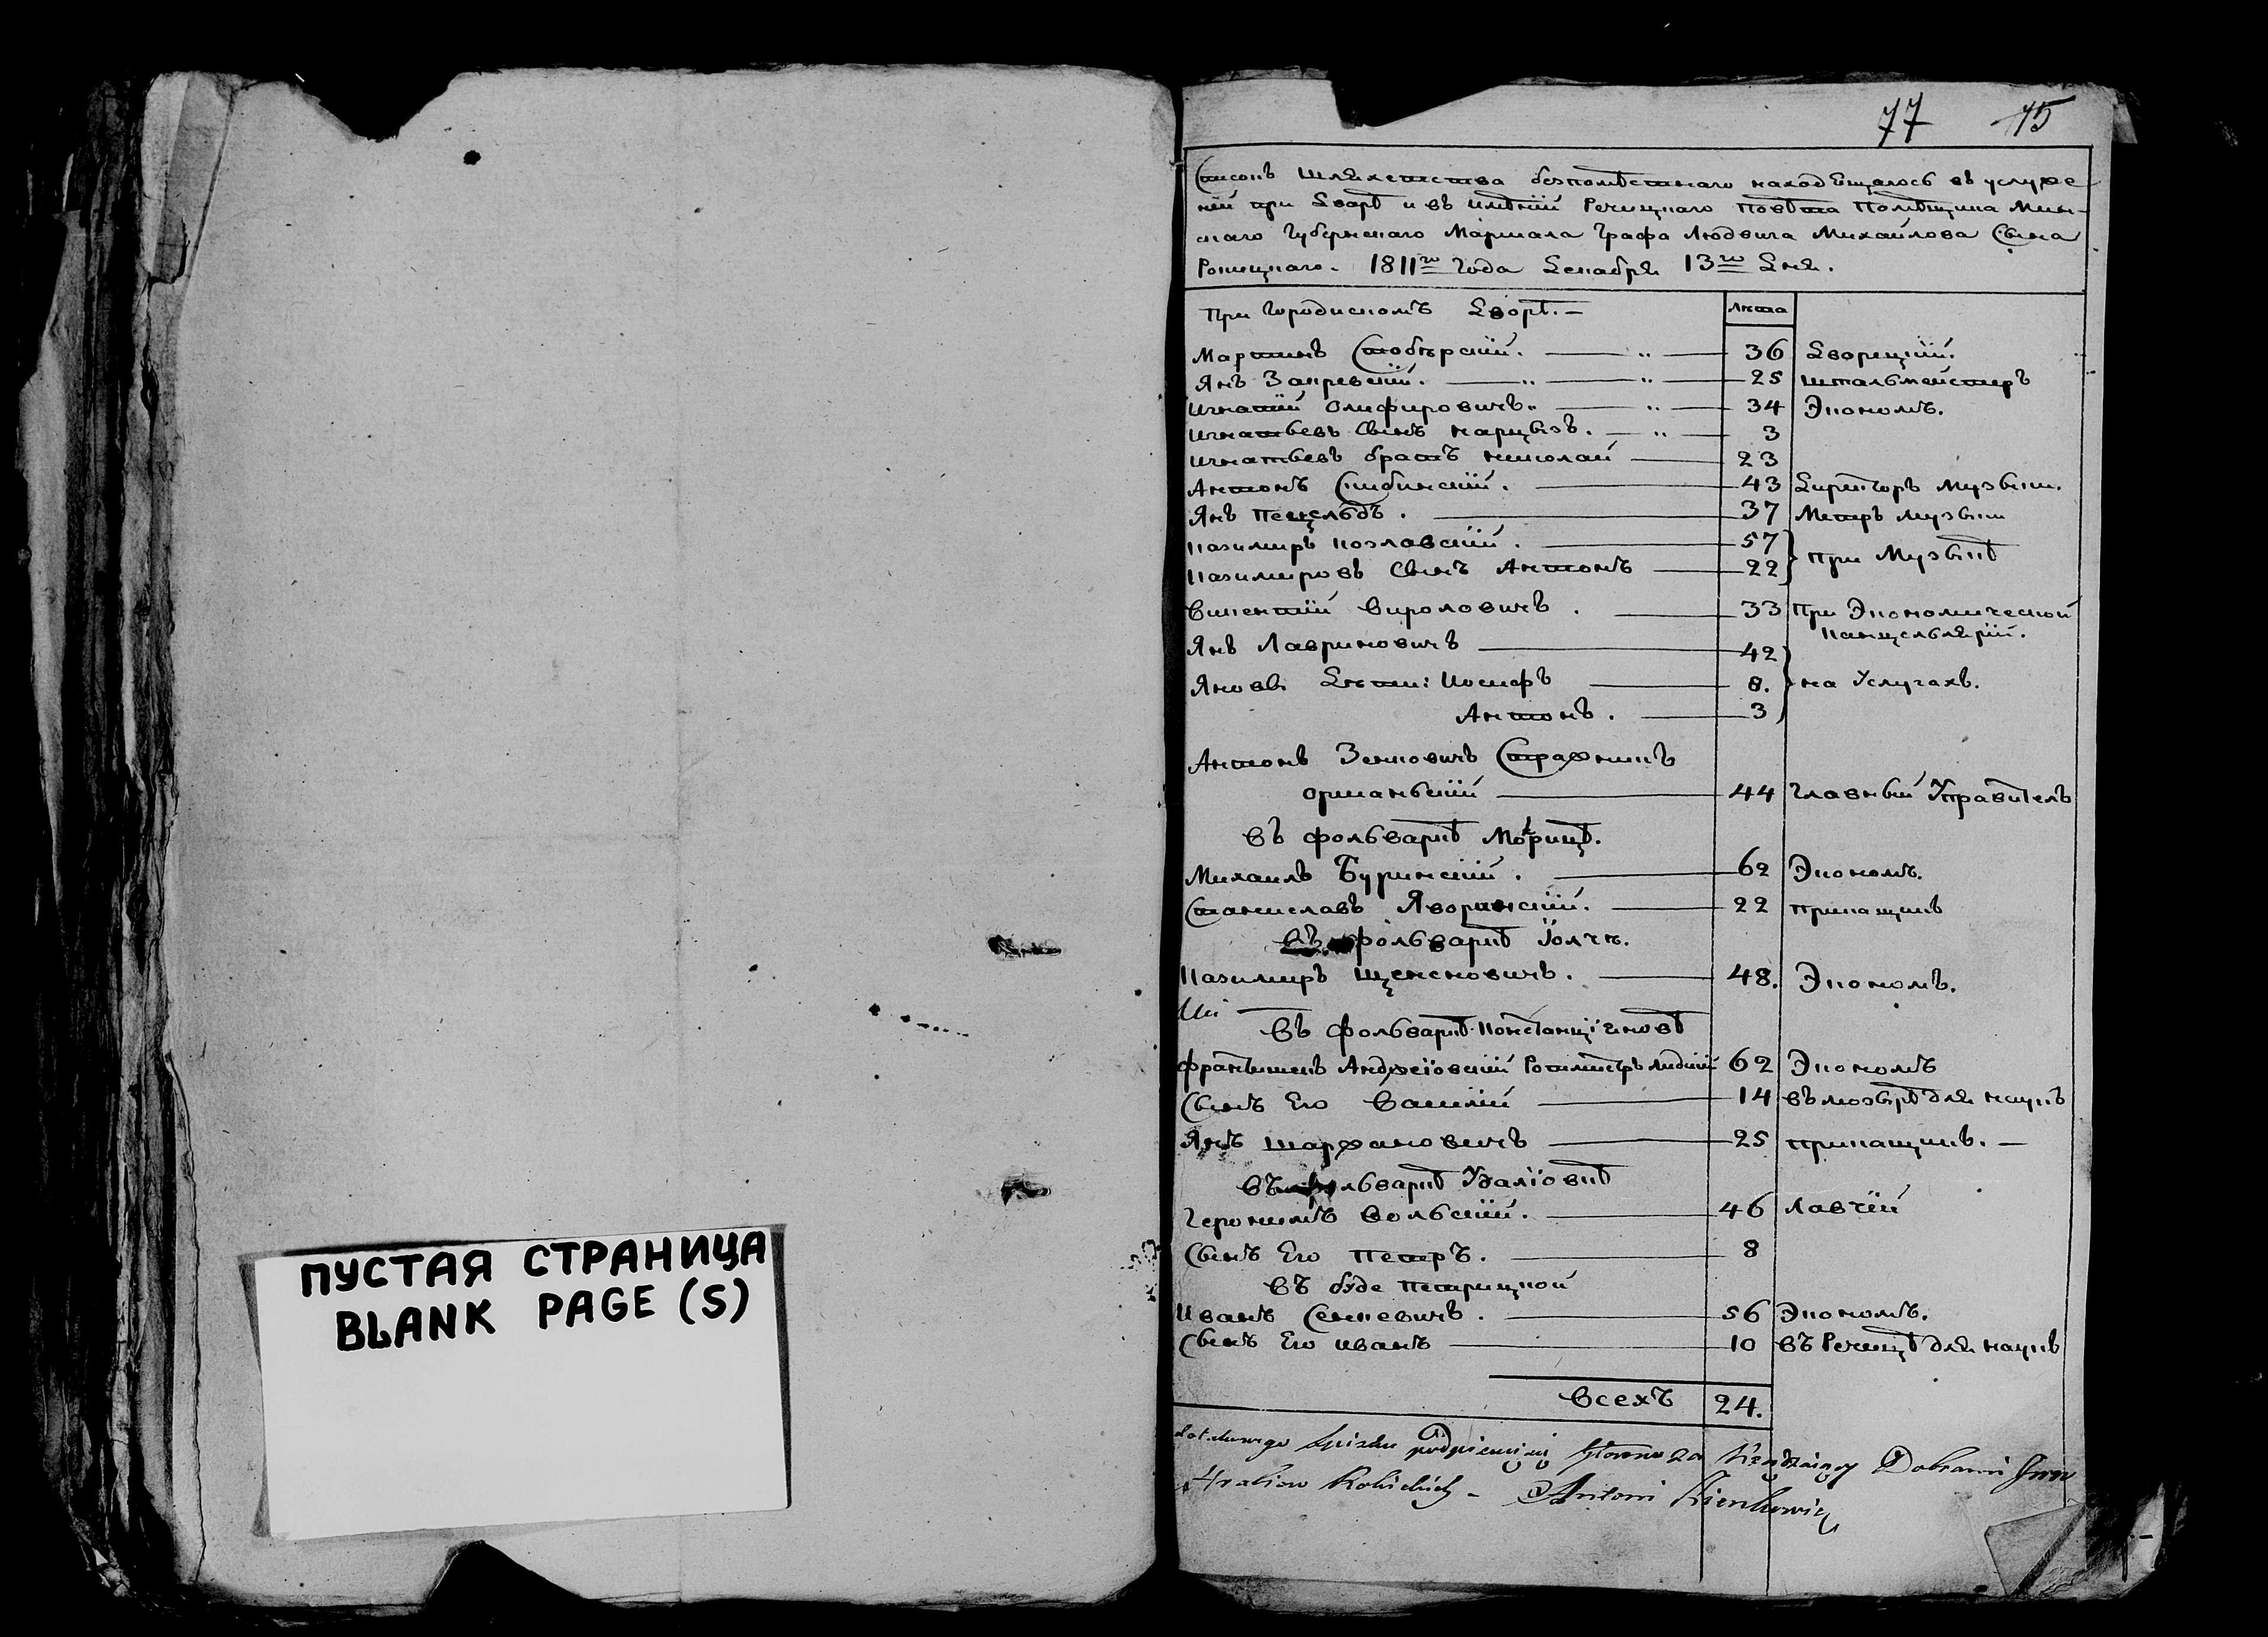 ПУСТАЯ СТРАНИЦА
BLANK PAGE (S)
77 15
Списокъ Шляхетства безпомѣстнаго находящагось въ услуже
нїи при Дворѣ и въ имѣнїи Речицкаго Повѣта Помѣщика Мин-
скаго Губернскаго Маршала Графа Людвига Михайлова Сына
Рокицкаго. 1811го Года Декабря 13го Дня.
При Городискомъ Дворѣ. — Лѣта
Мартинъ Стобѣрскїй. 36 Дворецкїй.
Янъ Закревскїй. 25 Штальмейстеръ
Игнатїй Олифировичъ 34 Экономъ.
Игнатьевъ Сынъ Нарцызъ. 3
Игнатьевъ братъ Николай 23
Антонъ Скибинскїй. 43 Директоръ Музыки.
Янъ Пецельдъ. 37 Метръ Музыки
Казимиръ Козлавскїй. 57 При Музыкѣ
Казимировъ Сынъ Антонъ 22
Викентїй Вироловичъ. 33 При Экономической
Канцелярїи.
Янъ Лавриновичъ 42
Яновы Дѣти: Иосифъ 8. на Услугахъ.
Антонъ. 3
Антонъ Зенковичъ Стражникъ
оршанскїй 44 Главный Управитель
въ фольваркѣ Мокрицѣ.
Михаилъ Буринскїй. 62 Экономъ.
Станиславъ Яворинскїй. 22 прикащикъ
въ фольваркѣ Іолчѣ.
Казимиръ Щенсновичъ. 48. Экономъ.
въ фольваркѣ Констанцїиновѣ
Францишекъ Анджеїовскїй Ротмистръ Лидскїй 62 Экономъ
Сынъ Его Василїй 14 въ мозырѣ для наукъ
Янъ Шаржановичъ 25 прикащикъ. —
въ фольваркѣ Удалїовкѣ
Геронимъ Вольскїй. 46 Лавчїй
Сынъ Его Петръ. 8
въ буде Петрицкой
Иванъ Сенкевичъ. 56 Экономъ.
Сынъ Его иванъ 10 въ Речицѣ для наукъ
Всехъ 24.
Antoni Zienkowicz